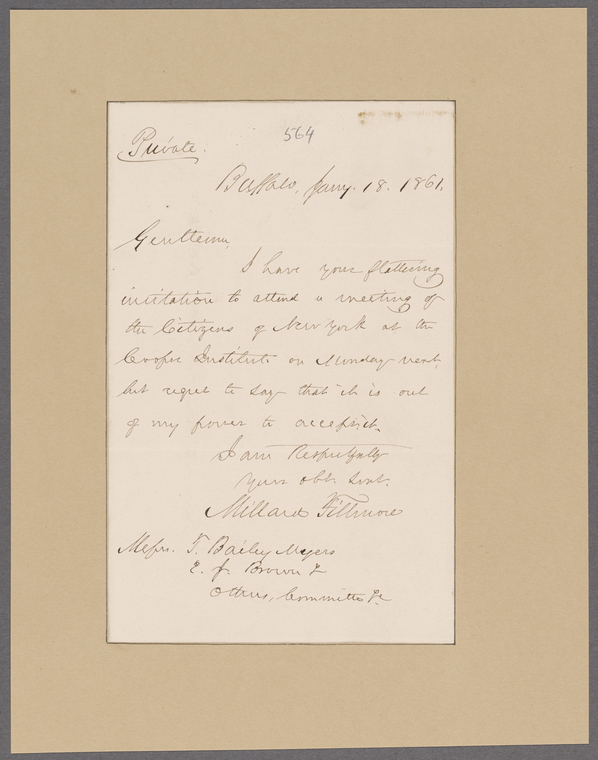 564
Private.
Buffalo, Jany. 18. 1861.
Gentlemen,
I have your flattering
invitation to attend a meeting of
the Citizens of New York at the
Cooper Institute on Monday next,
but regret to say that it is out
of my power to accept it.
I am Respectfully
Your obt. Servt.
Millard Fillmore
Messrs. T. Bailey Myers
E. J. Brown &
Others, Committee &c.